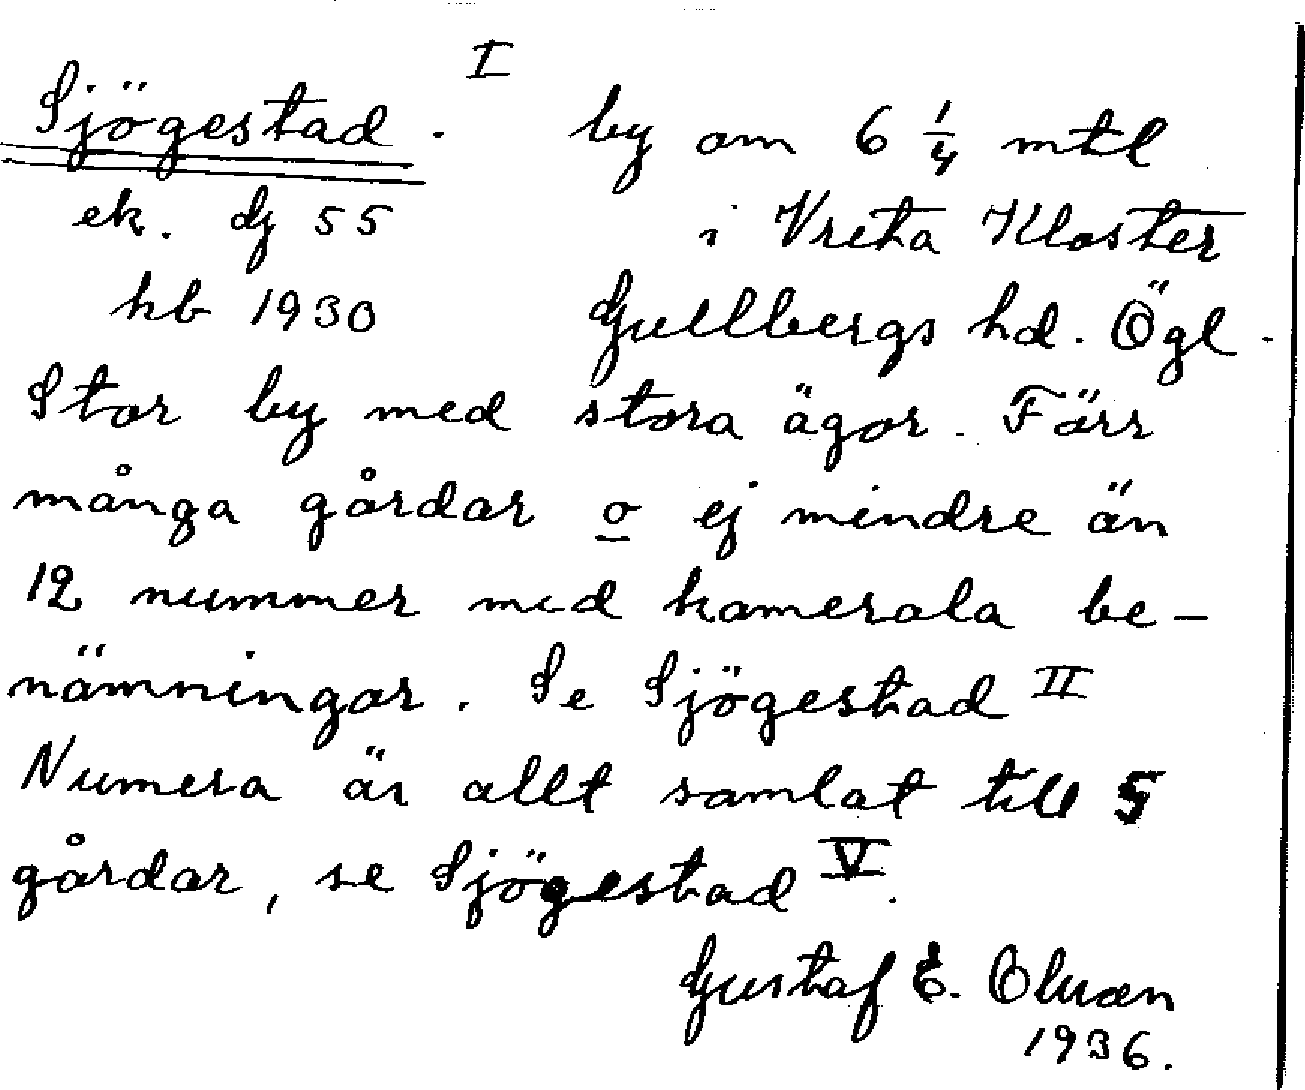 Sjögestad. I by om 6 1/4 mtl
ek. dj 55 i Vreta Kloster
hb 1930 Gullbergs hd. Ögl.
Stor by med stora ägor. Förr
många gårdar o ej mindre än
12 nummer med kamerala be-
nämningar. Se Sjögestad II
Numera är allt samlat till 5
gårdar, se Sjögestad V.
Gustaf E.
1936.